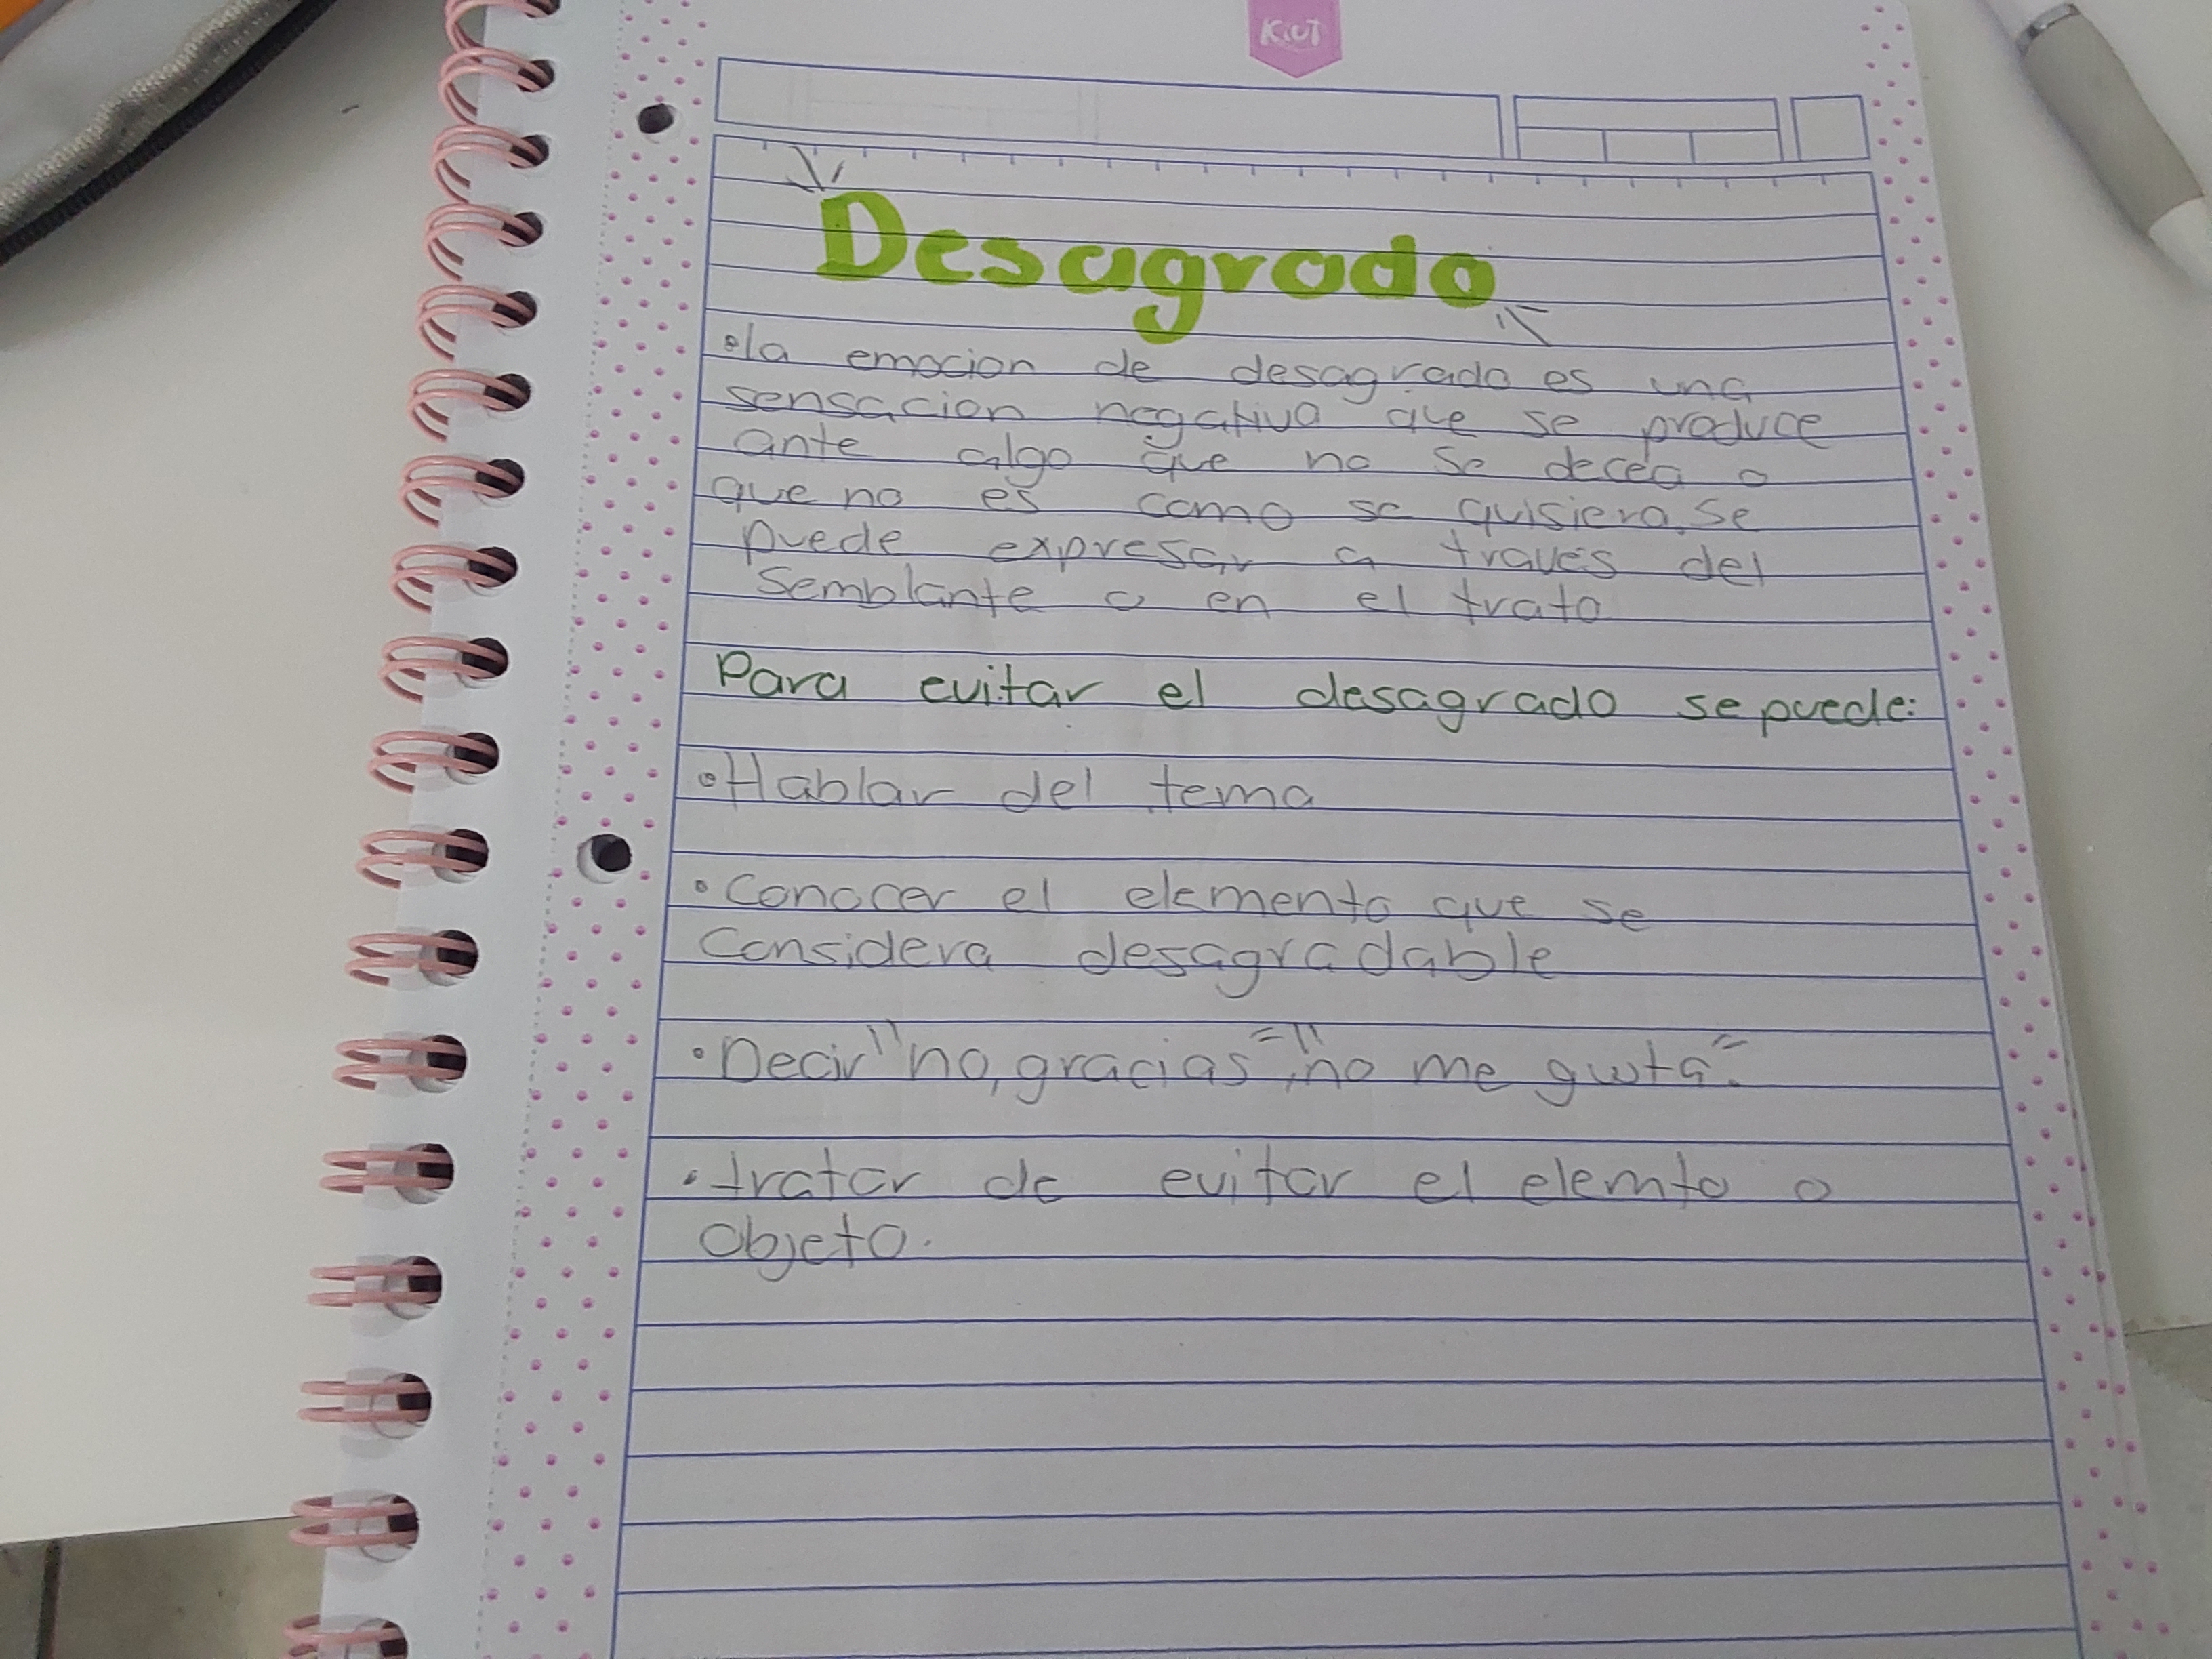 Kiut
Desagrado
•la emocion de desagrado es una
sensacion negativa que se produce
ante algo que no se decea o
que no es como se quisiera, se
puede expresar a través del
semblante o en el trato
Para evitar el desagrado se puede:
•Hablar del tema
•Conocer el elemento que se
considera desagradable
•Decir "no, gracias", "no me gusta".
•tratar de evitar el elemto o
objeto.